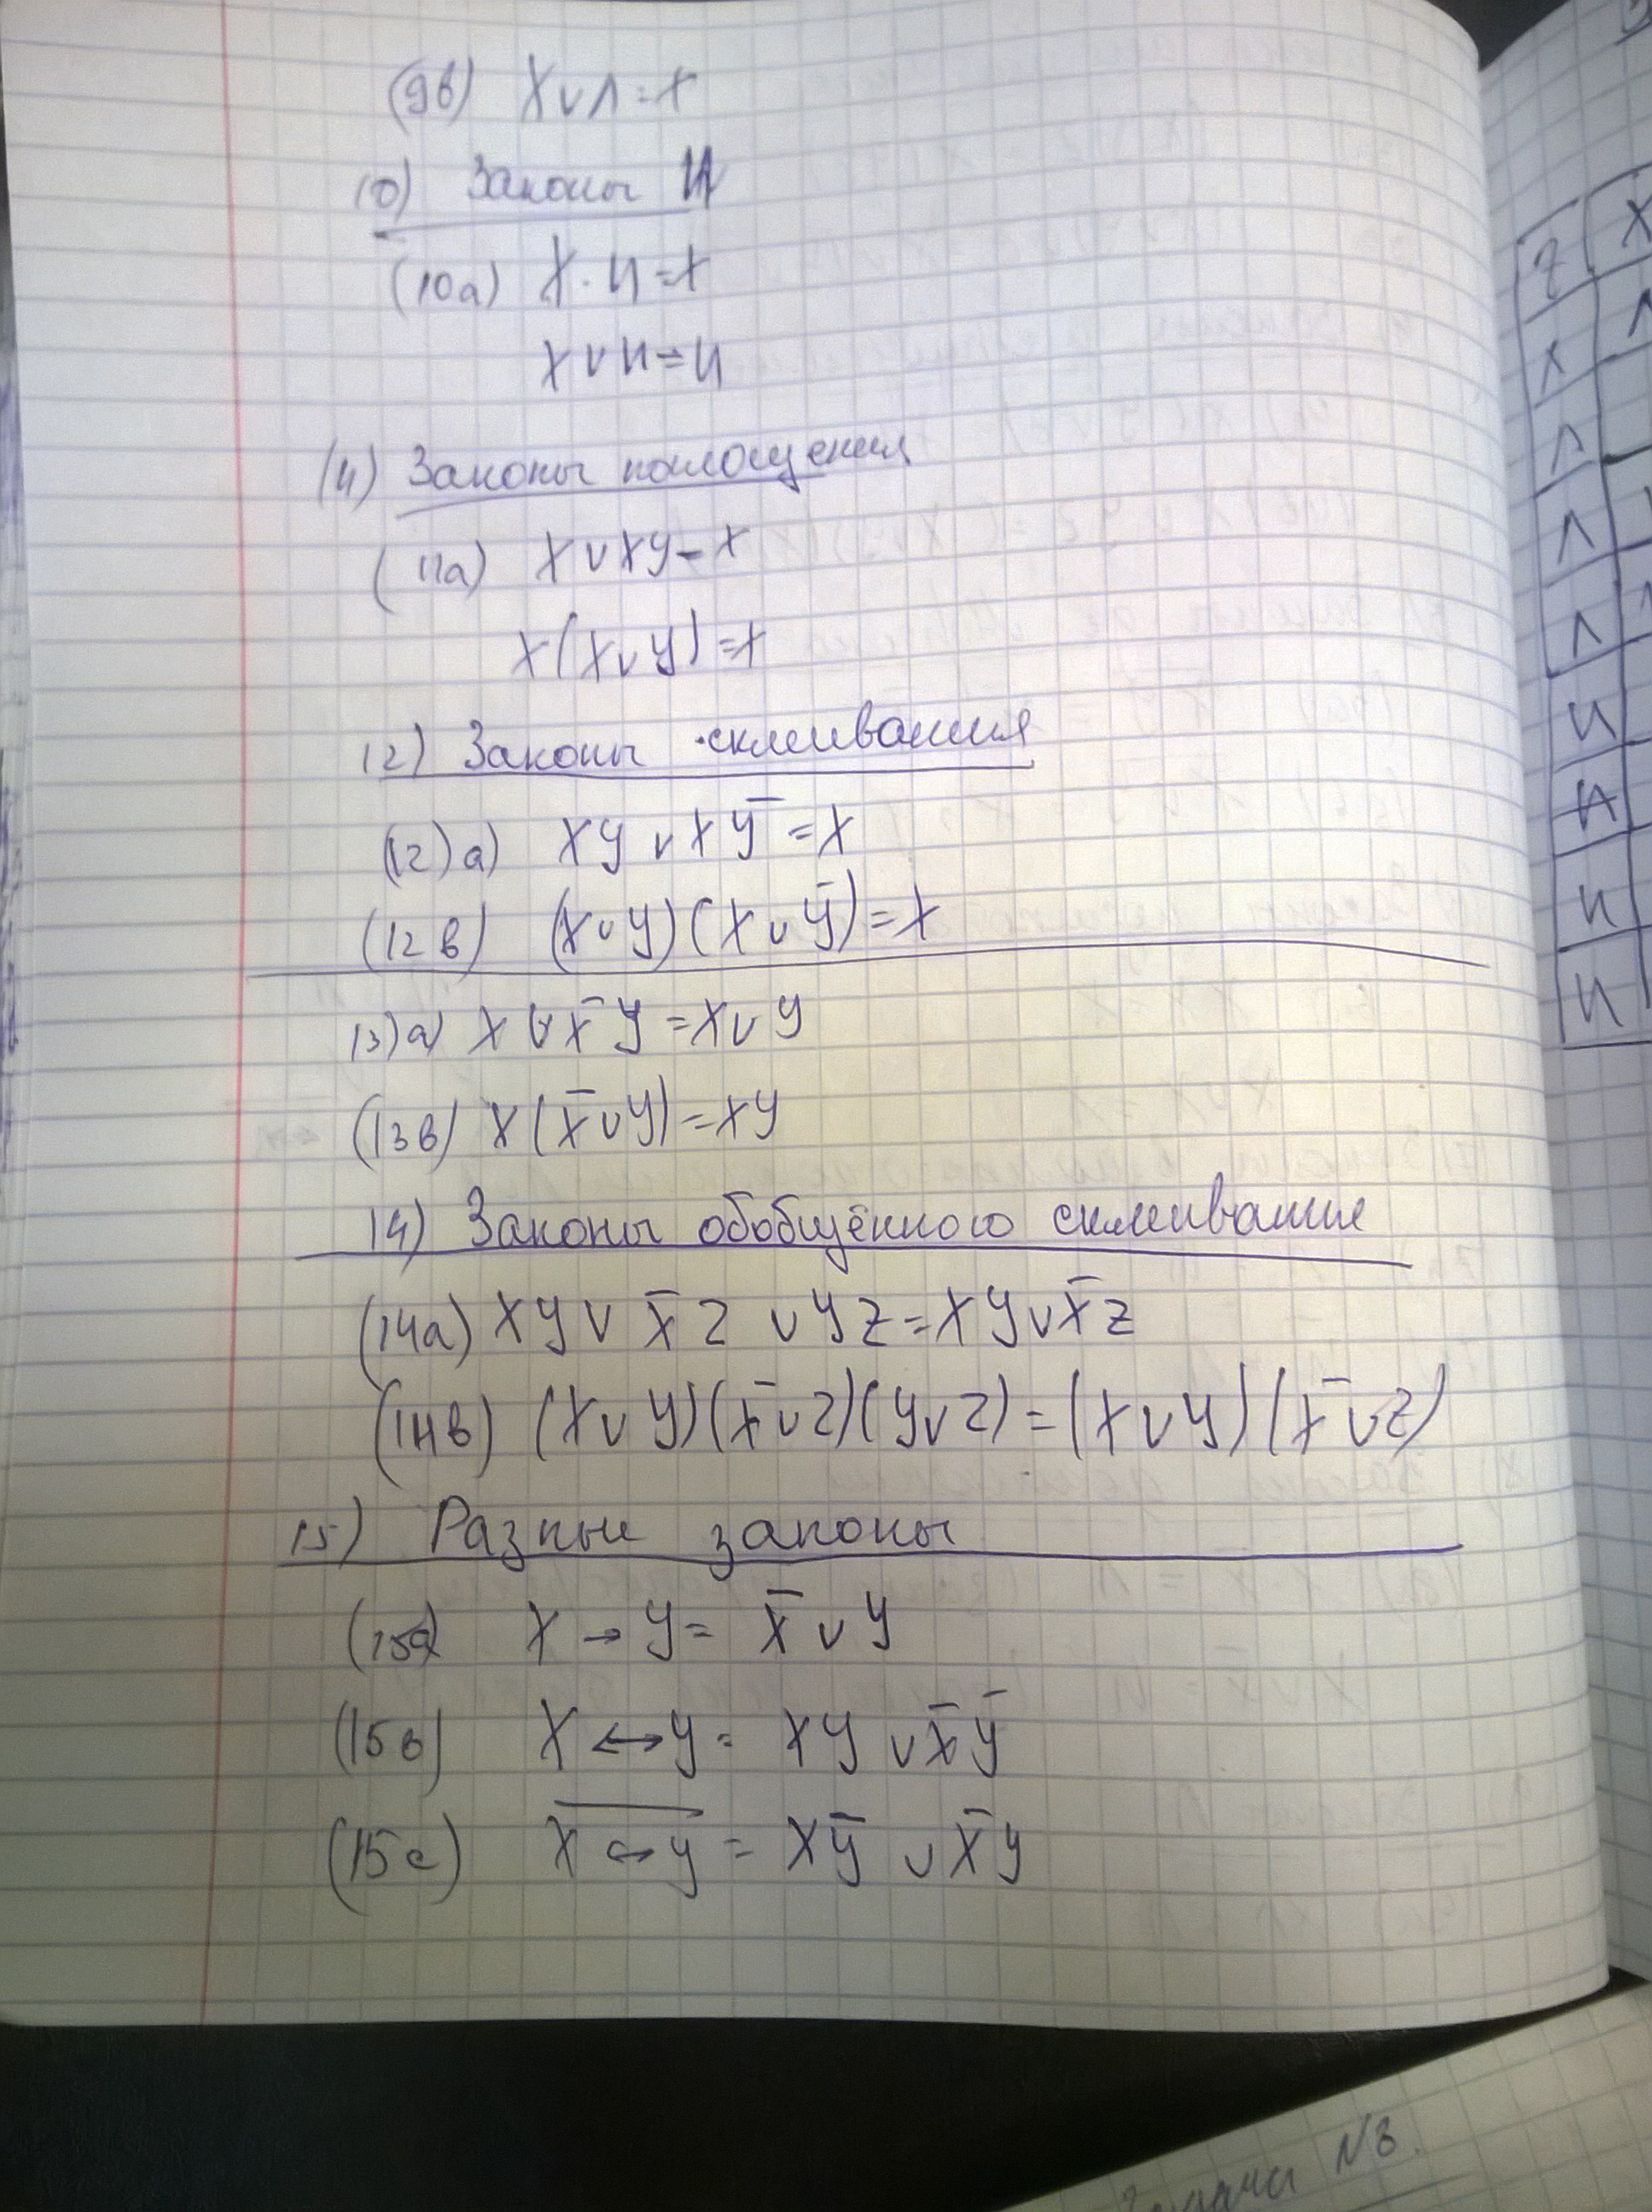 (9в) X∨Л=X
10) Законы И
(10а) X·И=X
X∨И=И
(11) Законы поглощения
(11а) X∨XY=X
X(X∨Y)=X
12) Законы склеивания
(12)а) XY∨XY̅=X
(12в) (X∨Y)(X∨Y̅)=X
13)а) X∨X̅Y=X∨Y
(13в) X(X̅∨Y)=XY
14) Законы обобщённого склеивания
(14а) XY∨X̅Z∨YZ=XY∨X̅Z
(14в) (X∨Y)(X̅∨Z)(Y∨Z)=(X∨Y)(X̅∨Z)
15) Разные законы
(15а) X→Y= X̅∨Y
(15в) X↔Y= XY∨X̅Y̅
(15с) X̅ ↔̅ Y̅ = XY̅∨X̅Y
Z
X
Л
Л
Л
Л
И
И
И
И
Задача №3.